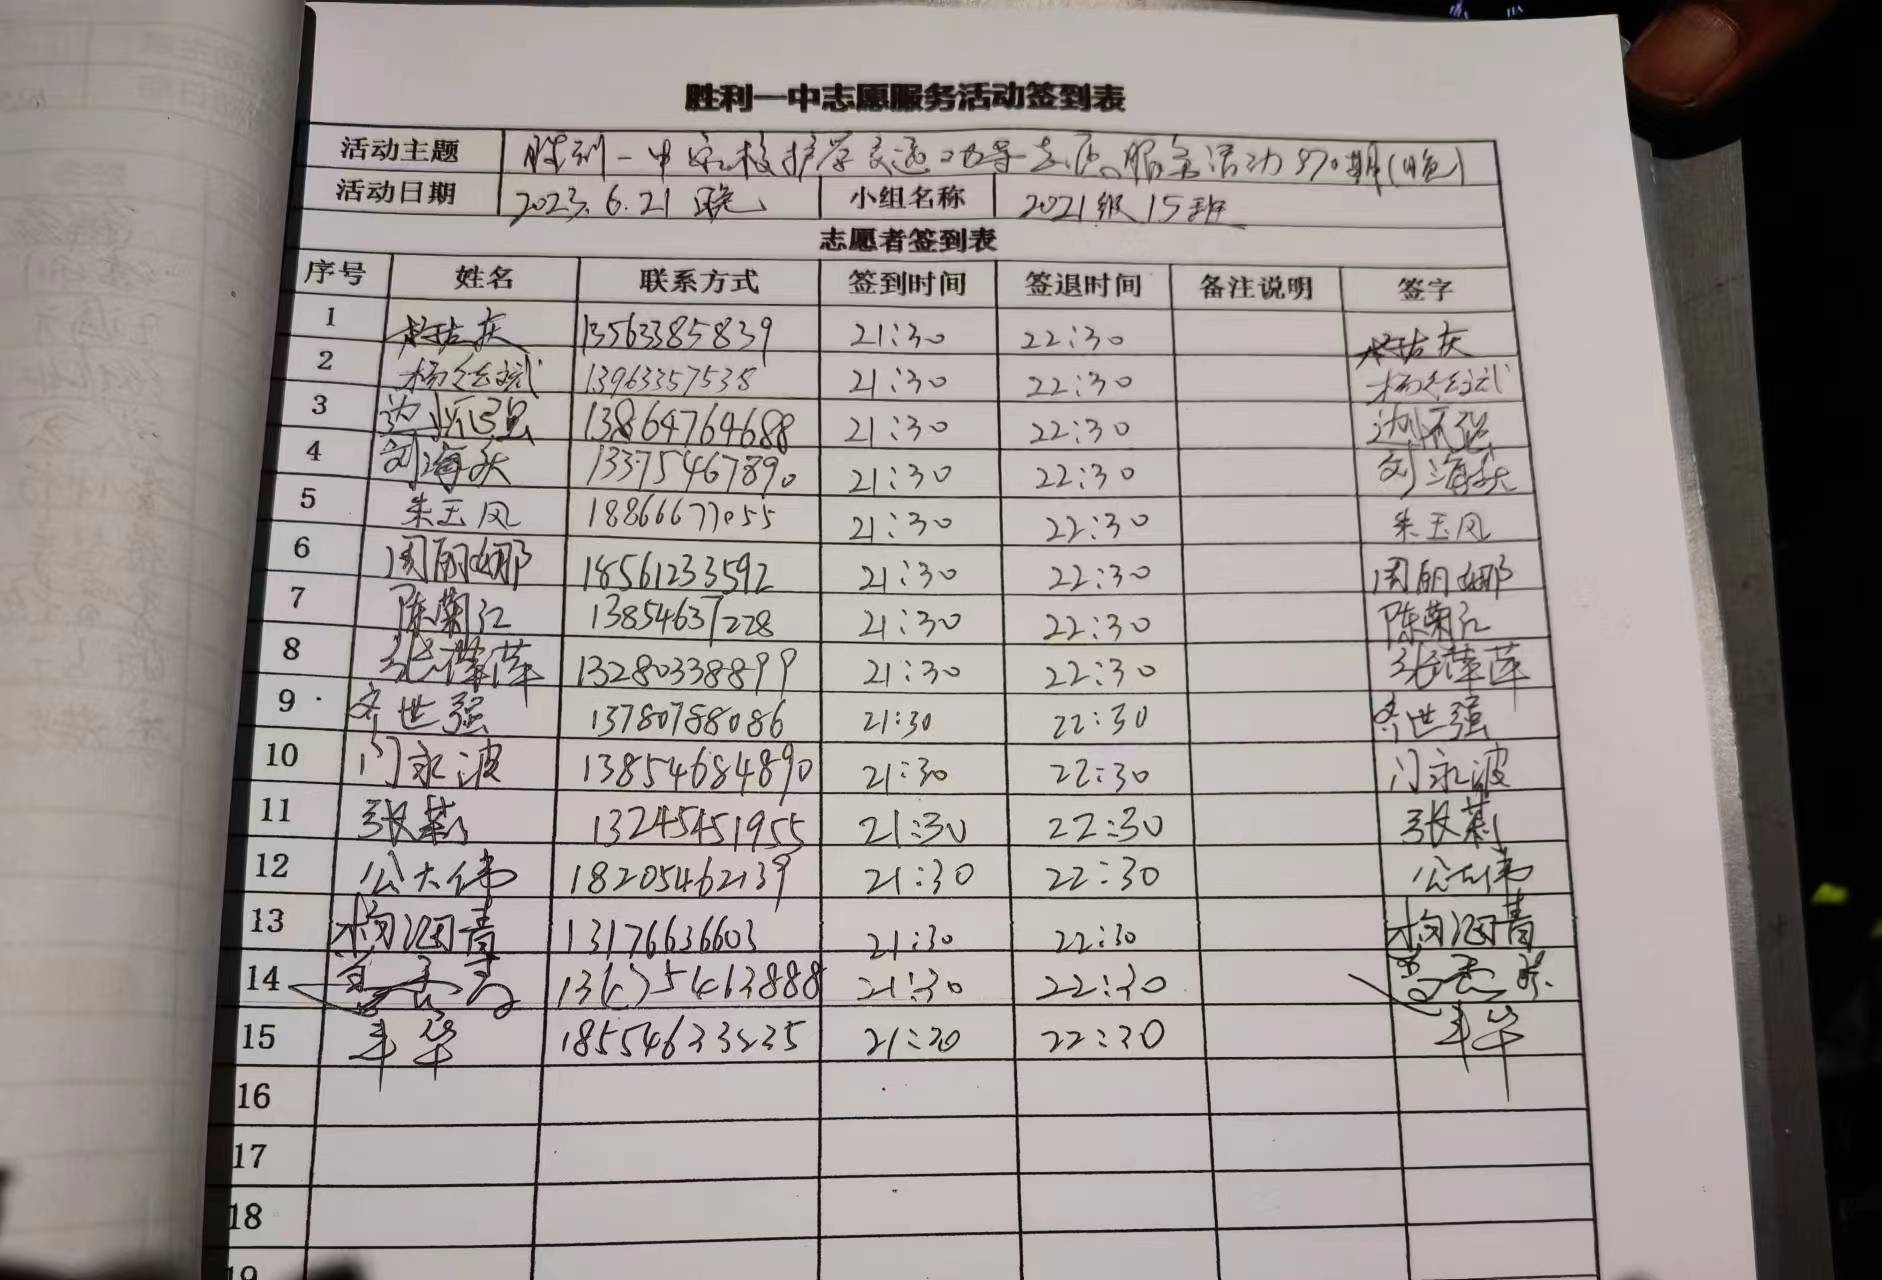 胜利一中志愿服务活动签到表
活动主题 胜利一中家校护学交通劝导志愿服务活动570期(晚)
活动日期 2023.6.21 晚 小组名称 2021级15班
志愿者签到表
序号 姓名 联系方式 签到时间 签退时间 备注说明 签字
1 13563385839 21:30 22:30
2 13963357538 21:30 22:30
3 13864764688 21:30 22:30
4 刘海 13375467890 21:30 22:30 刘海
5 朱玉凤 18866677055 21:30 22:30 朱玉凤
6 周丽娜 18561233592 21:30 22:30 周丽娜
7 陈菊红 13854637228 21:30 22:30 陈菊红
8 张萍萍 13280338899 21:30 22:30 张萍萍
9 齐世强 13780788086 21:30 22:30 齐世强
10 门永波 13854684890 21:30 22:30 门永波
11 张莉 13245451955 21:30 22:30 张莉
12 公大伟 18205462139 21:30 22:30 公大伟
13 13176636603 21:30 22:30
14 21:30 22:30
15 21:30 22:30
16
17
18
19